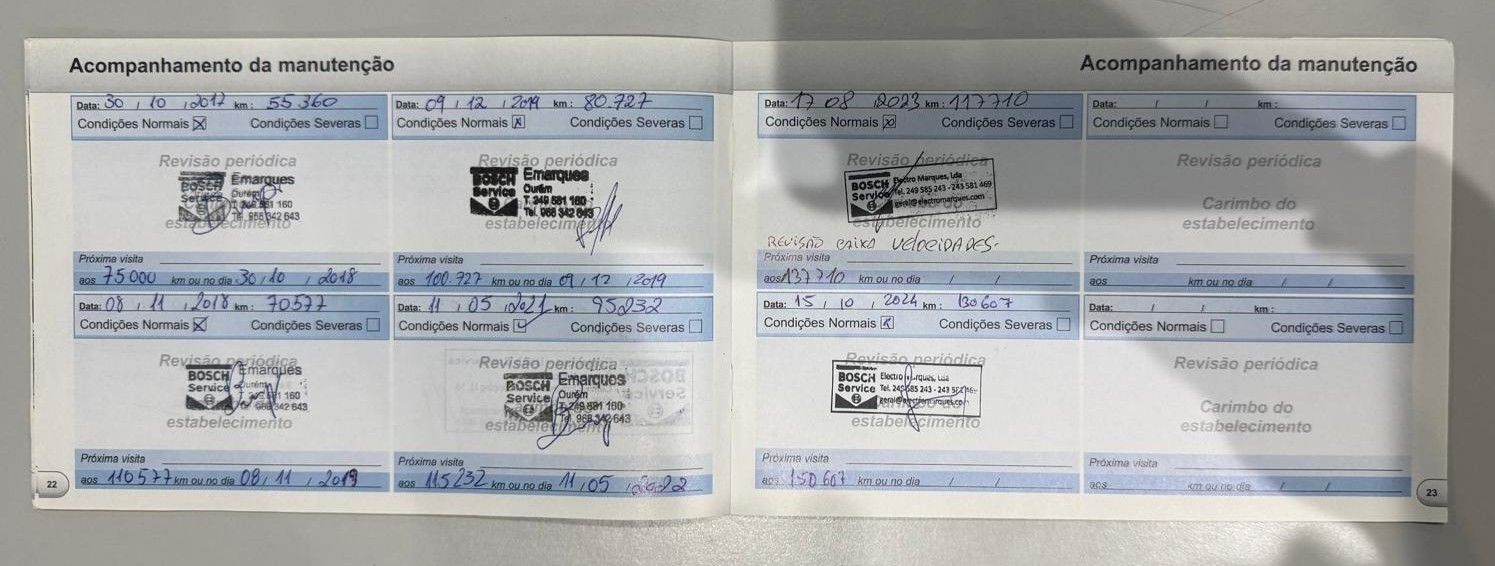 Acompanhamento da manutenção
Data: 30 / 10 / 2017 km: 55360
Condições Normais Condições Severas
Revisão periódica
BOSCH Service
Emarques
Ourém
T. 249 581 160
Tel. 968 342 643
estabelecimento
Próxima visita
aos 75000 km ou no dia 30 / 10 / 2018
Data: 08 / 11 / 2018 km: 70577
Condições Normais Condições Severas
Revisão periódica
BOSCH Service
Emarques
Ourém
160
Tel. 968 342 643
estabelecimento
Próxima visita
aos 110577 km ou no dia 08 / 11 / 2019
22
Data: 09 / 12 / 2019 km: 80.727
Condições Normais Condições Severas
Revisão periódica
BOSCH Service
Emarques
Ourém
T. 249 581 160
Tel. 968 342 643
estabelecimento
Próxima visita
aos 100.727 km ou no dia 09 / 12 / 2019
Data: 11 / 05 / 2021 km: 95232
Condições Normais Condições Severas
Revisão periódica
BOSCH Service
Emarques
Ourém
T. 249 581 160
Tel. 968 342 643
estabelecimento
Próxima visita
aos 115232 km ou no dia 11 / 05 / 2022
Acompanhamento da manutenção
Data: 17 08 / 2023 km: 117710
Condições Normais Condições Severas
Revisão periódica
BOSCH Service
Electro Marques, Lda
Tel. 249 585 243 - 243 581 469
geral@electromarques.com
estabelecimento
REVISÃO CAIXA VELOCIDADES.
Próxima visita
aos 137710 km ou no dia / /
Data: 15 / 10 / 2024 km: 130607
Condições Normais Condições Severas
Revisão periódica
BOSCH Service
Electro Marques, Lda
Tel. 249 585 243 - 243
estabelecimento
Próxima visita
aos 150607 km ou no dia / /
Data: / / km:
Condições Normais Condições Severas
Revisão periódica
Carimbo do
estabelecimento
Próxima visita
aos km ou no dia / /
Data: / / km:
Condições Normais Condições Severas
Revisão periódica
Carimbo do
estabelecimento
Próxima visita
aos km ou no dia / /
23